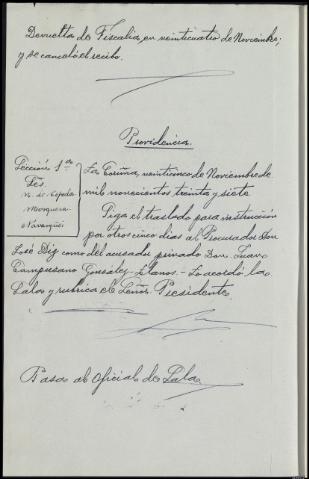 Devuelta de Fiscalía, en veinticuatro de Noviembre;
y se canceló el recibo.
Providencia.
Sección 1ª
Tes.
Mosquera
La Coruña, veinticinco de Noviembre de
mil novecientos treinta y siete
Siga el traslado para instrucción
por otros cinco días al Procurador Don
José Diz como del acusador privado Don Juan
Campusano González-Llanos.- Lo acordó la
Sala y rubrica el Señor Presidente.
Pasa al Oficial de Sala